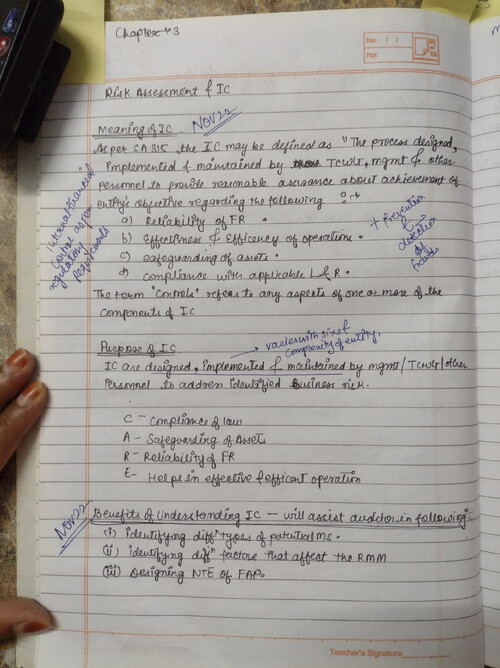 Chapter-3
Date: / /
Page:
Risk Assessment & IC
Meaning of IC Nov 22
As per SA 315, the IC may be defined as "The process designed,
implemented & maintained by TCWG, mgmt & other
personnel to provide reasonable assurance about achievement of
entity's objective regarding the following
a) Reliability of FR.
b) Effectiveness & Efficency of operation.
c) safeguarding of assets.
d) compliance with applicable L&R.
+ Prevention
&
detection
of
frauds
internal financial
control as per
regulatory
requirements
The term "controls" refers to any aspects of one or more of the
components of IC
Purpose of IC
varies with size &
complexity of entity.
IC are designed, implemented & maintained by mgmt/TCWG/other
Personnel to address identified business risk.
C - Compliance of law
A - Safeguarding of Assets
R - Reliability of FR
E - Helps in effective & efficent operation
Nov 22
Benefits of Understanding IC - will assist auditor in following:-
(i) identifying diffⁿ types of potential MS.
(ii) identifyng diffⁿ factors that affect the RMM
(iii) Designing NTE of FAP.
Teacher's Signature